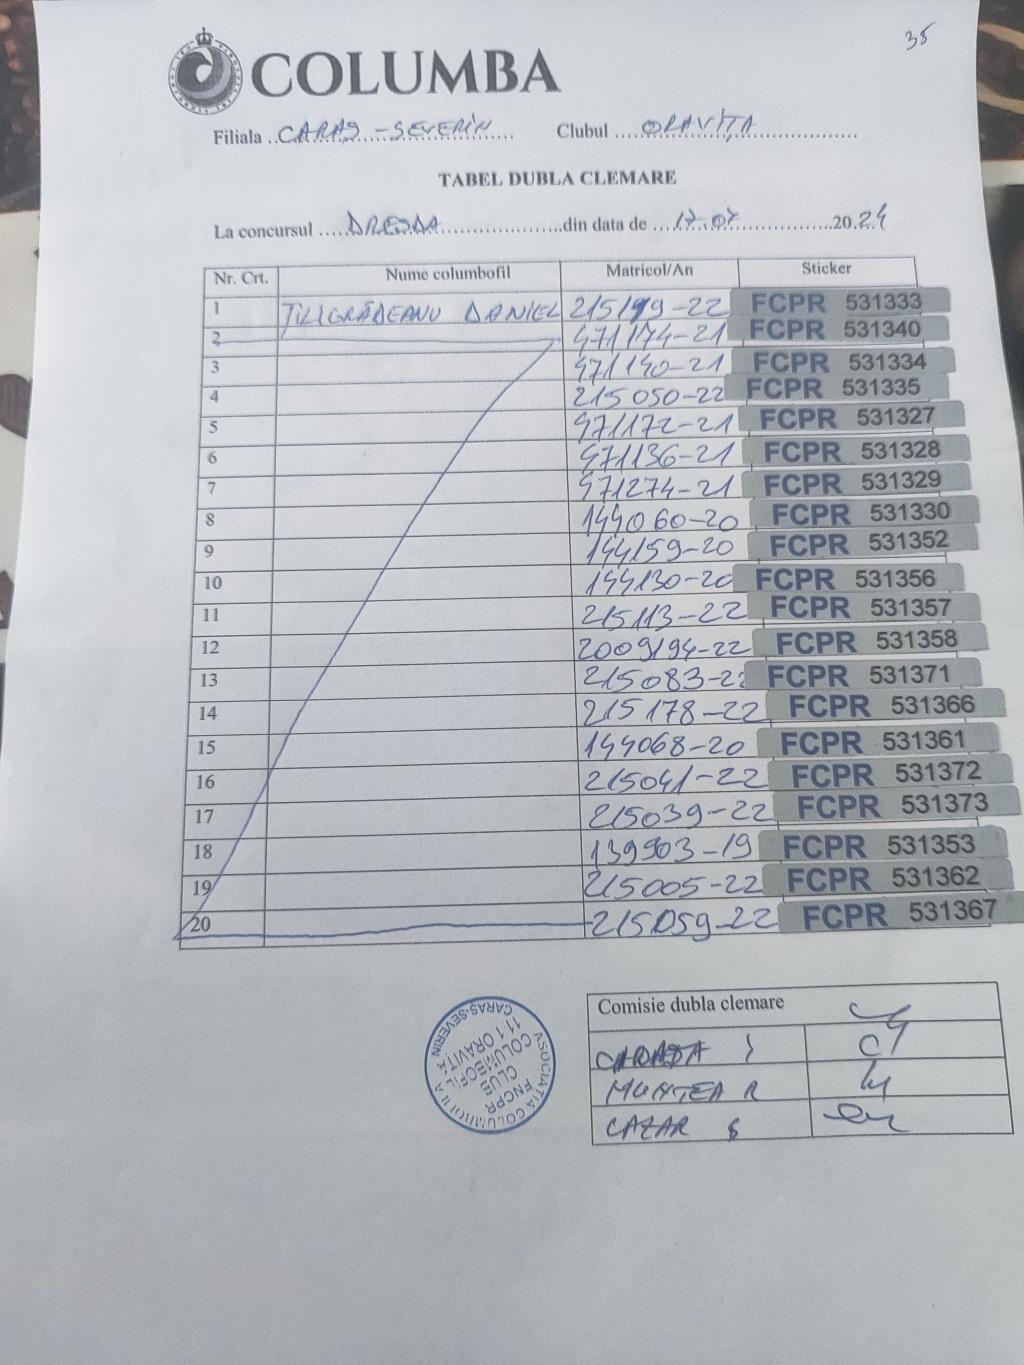 35
COLUMBA
Filiala ..CARAȘ-SEVERIN.... Clubul ....ORAVIȚA...............
TABEL DUBLA CLEMARE
La concursul .....DRESDA...................din data de ...17.07...............20.24
Nr. Crt. Nume columbofil Matricol/An Sticker
1 TILIGRĂDEANU DANIEL 215199-22 FCPR 531333
2 471174-21 FCPR 531340
3 471140-21 FCPR 531334
4 215050-22 FCPR 531335
5 471172-21 FCPR 531327
6 471136-21 FCPR 531328
7 471274-21 FCPR 531329
8 144060-20 FCPR 531330
9 144159-20 FCPR 531352
10 144130-20 FCPR 531356
11 215113-22 FCPR 531357
12 2009194-22 FCPR 531358
13 215083-22 FCPR 531371
14 215178-22 FCPR 531366
15 144068-20 FCPR 531361
16 215041-22 FCPR 531372
17 215039-22 FCPR 531373
18 139903-19 FCPR 531353
19 215005-22 FCPR 531362
20 215059-22 FCPR 531367
Comisie dubla clemare
MUNTEA R
CAZAR S
ASOCIATIA COLUMBOFILA
CARAS-SEVERIN
FNCPR
CLUB
COLUMBOFIL
11.1 ORAVITA